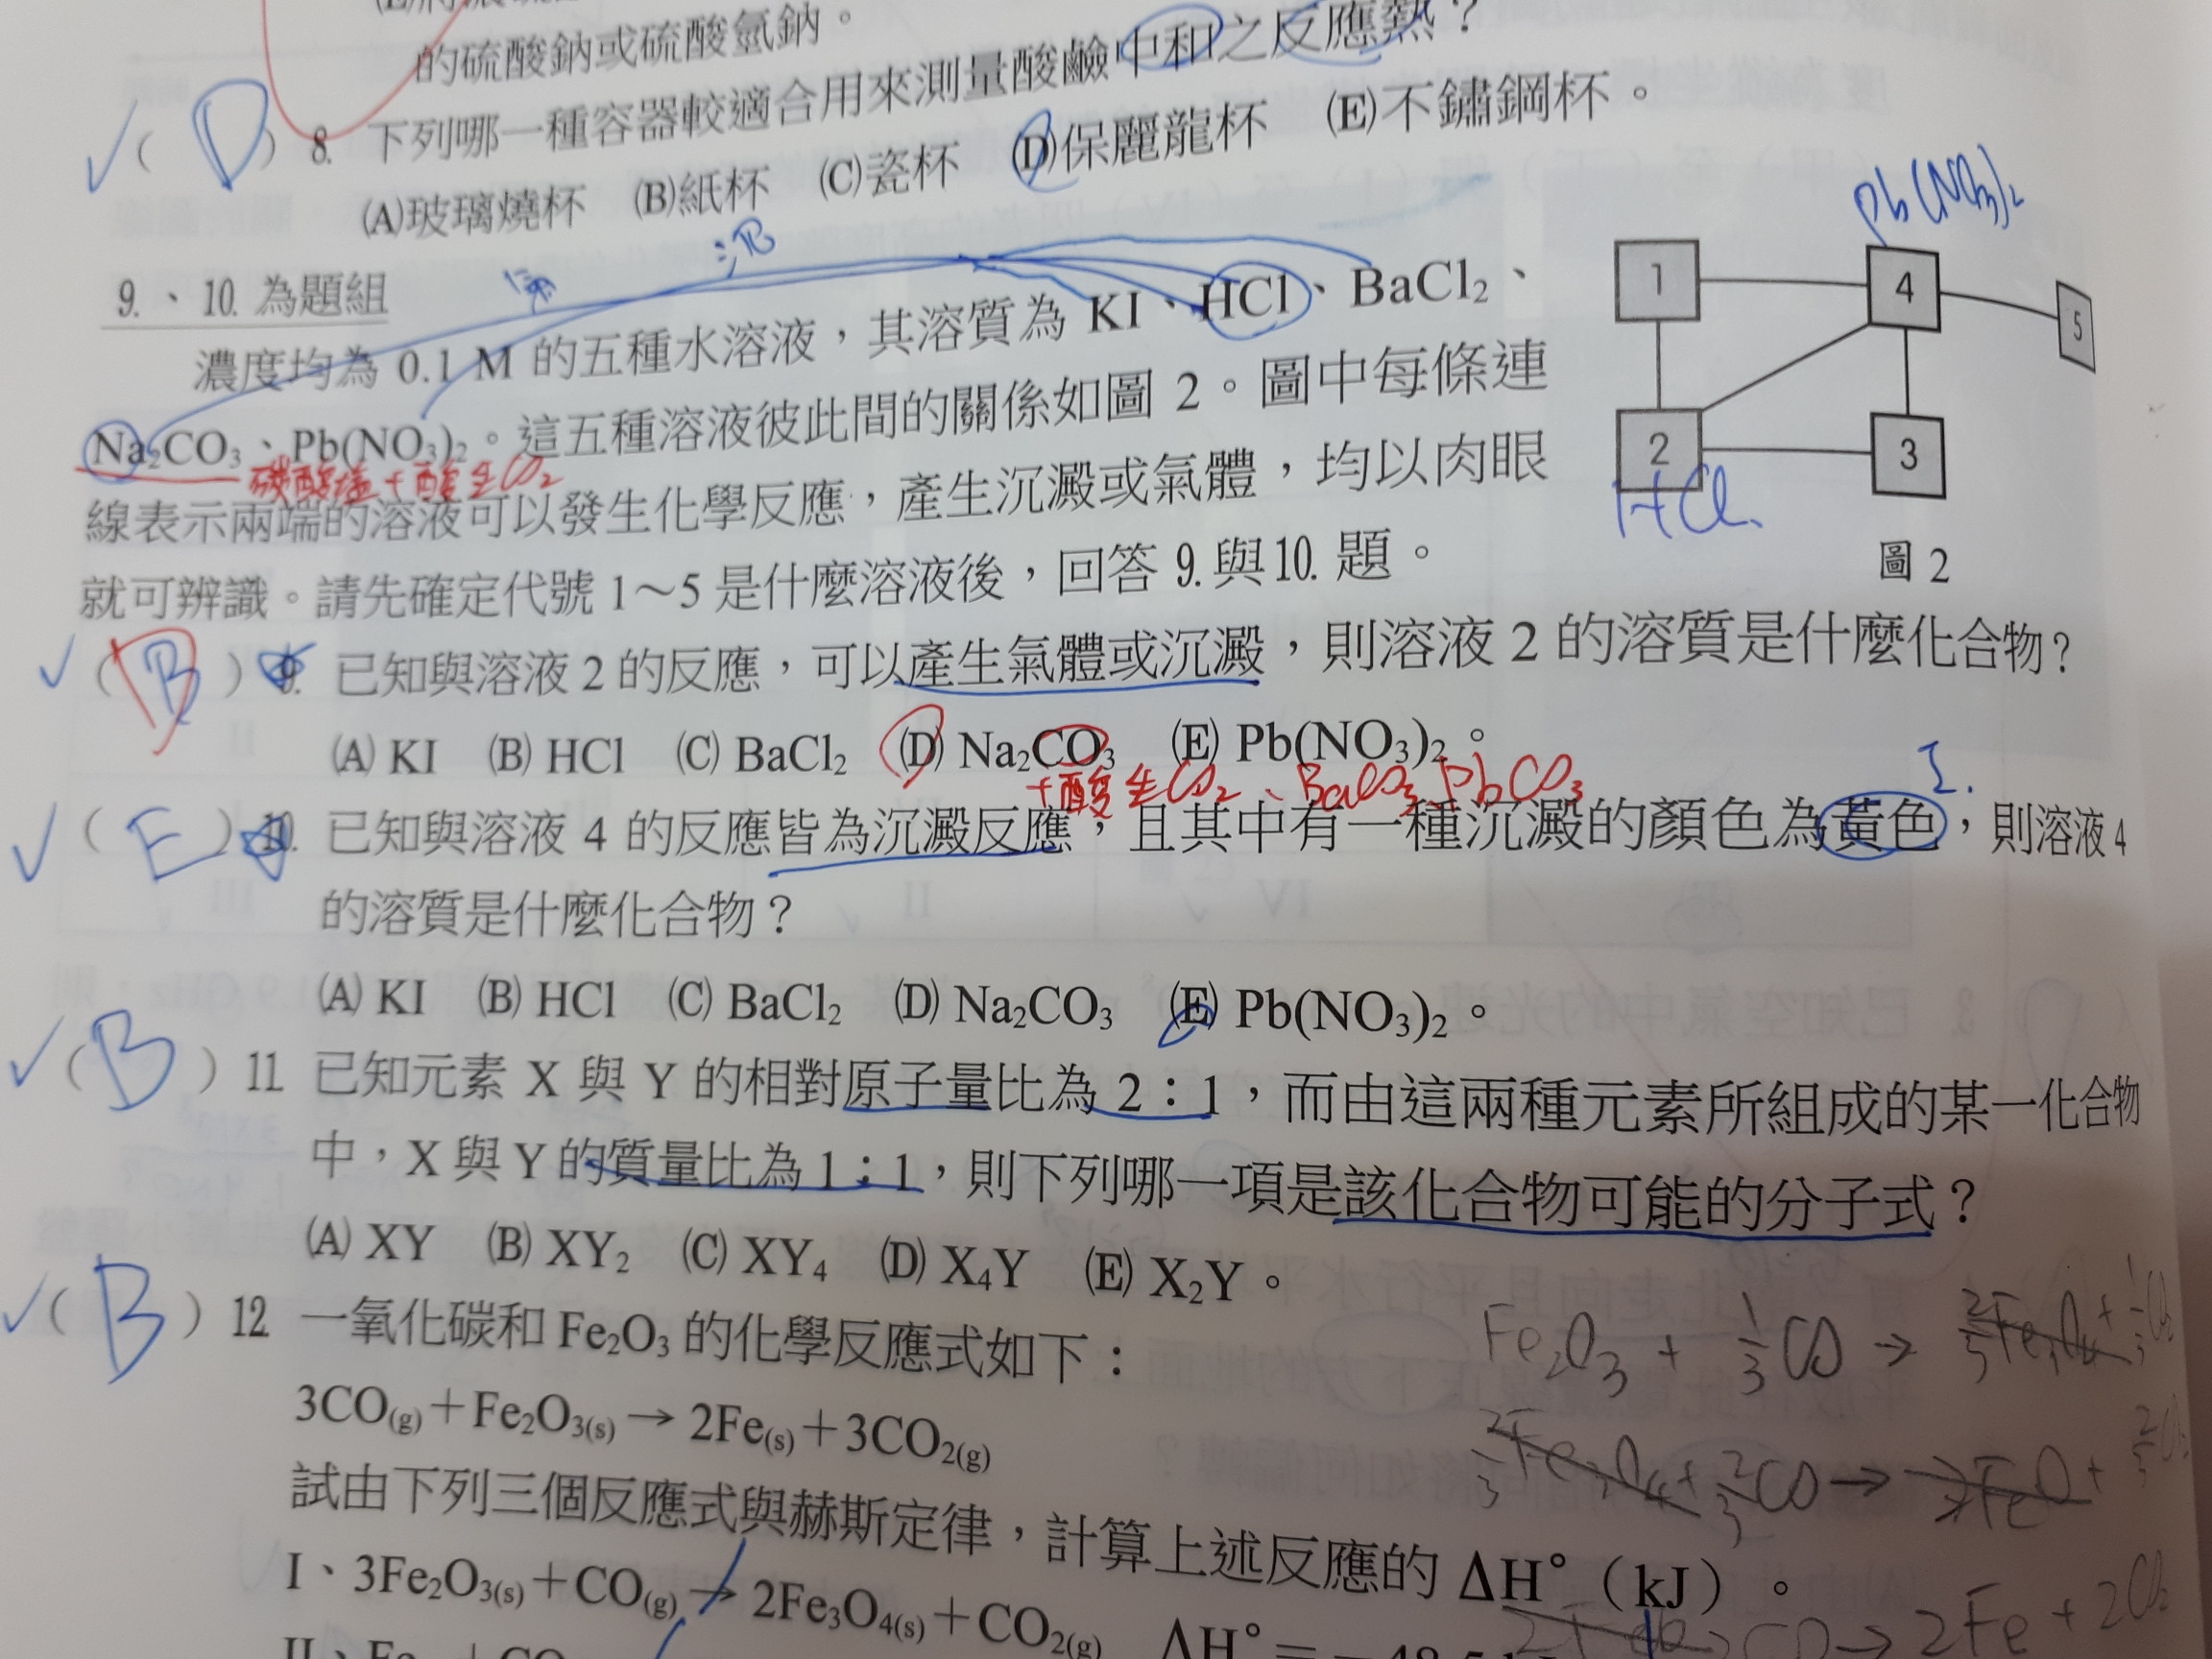 的硫酸鈉或硫酸氫鈉。
✓( D ) 8. 下列哪一種容器較適合用來測量酸鹼中和之反應熱？
(A)玻璃燒杯 (B)紙杯 (C)瓷杯 (D)保麗龍杯 (E)不鏽鋼杯。
9.、10. 為題組
濃度均為 0.1 M 的五種水溶液，其溶質為 KI、HCl、BaCl₂、
Na₂CO₃、Pb(NO₃)₂。這五種溶液彼此間的關係如圖 2。圖中每條連
碳酸塩+酸生CO₂
線表示兩端的溶液可以發生化學反應，產生沉澱或氣體，均以肉眼
就可辨識。請先確定代號 1～5 是什麼溶液後，回答 9.與10. 題。
Pb(NO₃)₂
1 4 5
2 3
HCl
圖 2
✓( B ) 9. 已知與溶液 2 的反應，可以產生氣體或沉澱，則溶液 2 的溶質是什麼化合物？
(A) KI (B) HCl (C) BaCl₂ (D) Na₂CO₃ (E) Pb(NO₃)₂。
+酸生CO₂、BaCO₃、PbCO₃
I.
✓( E ) 10. 已知與溶液 4 的反應皆為沉澱反應，且其中有一種沉澱的顏色為黃色，則溶液 4
的溶質是什麼化合物？
(A) KI (B) HCl (C) BaCl₂ (D) Na₂CO₃ (E) Pb(NO₃)₂。
✓( B ) 11. 已知元素 X 與 Y 的相對原子量比為 2：1，而由這兩種元素所組成的某一化合物
中，X 與 Y 的質量比為 1：1，則下列哪一項是該化合物可能的分子式？
(A) XY (B) XY₂ (C) XY₄ (D) X₄Y (E) X₂Y。
✓( B ) 12. 一氧化碳和 Fe₂O₃ 的化學反應式如下：
3CO(g)＋Fe₂O₃(s)→2Fe(s)＋3CO₂(g)
試由下列三個反應式與赫斯定律，計算上述反應的 ΔH°（kJ）。
I、3Fe₂O₃(s)＋CO(g)→2Fe₃O₄(s)＋CO₂(g) ΔH°＝
Fe₂O₃ + 1/3 CO →
2/3 Fe₃O₄ + 2/3 CO →
→ 2Fe + 2CO₂